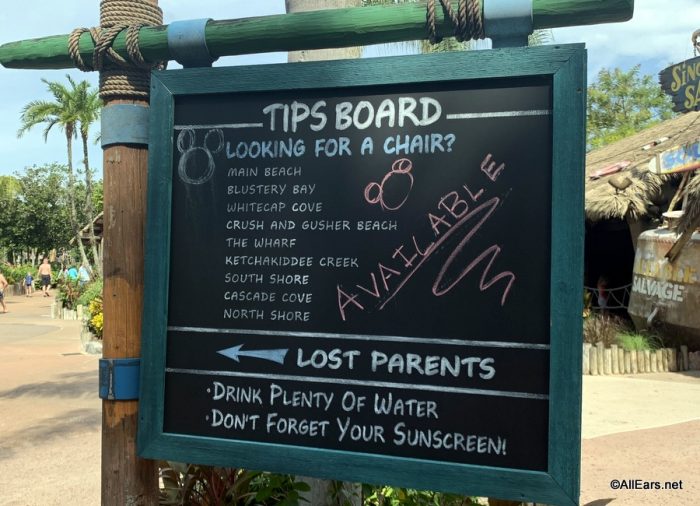 TIPS BOARD
LOOKING FOR A CHAIR?
MAIN BEACH
BLUSTERY BAY
WHITECAP COVE
CRUSH AND GUSHER BEACH
THE WHARF
KETCHAKIDDEE CREEK
SOUTH SHORE
CASCADE COVE
NORTH SHORE
AVAILABLE
LOST PARENTS
•DRINK PLENTY OF WATER
•DON'T FORGET YOUR SUNSCREEN!
SALVAGE
©AllEars.net